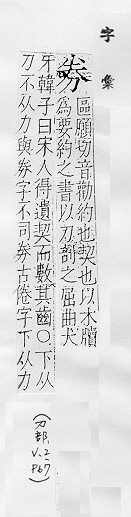 字彙
券
區願切音勸約也契也以木牘
為要約之書以刀剖之屈曲犬
牙韓子曰宋人得遺契而數其齒○下从
刀不从力與劵字不同劵古倦字下从力
(刀部, V.2- P67)